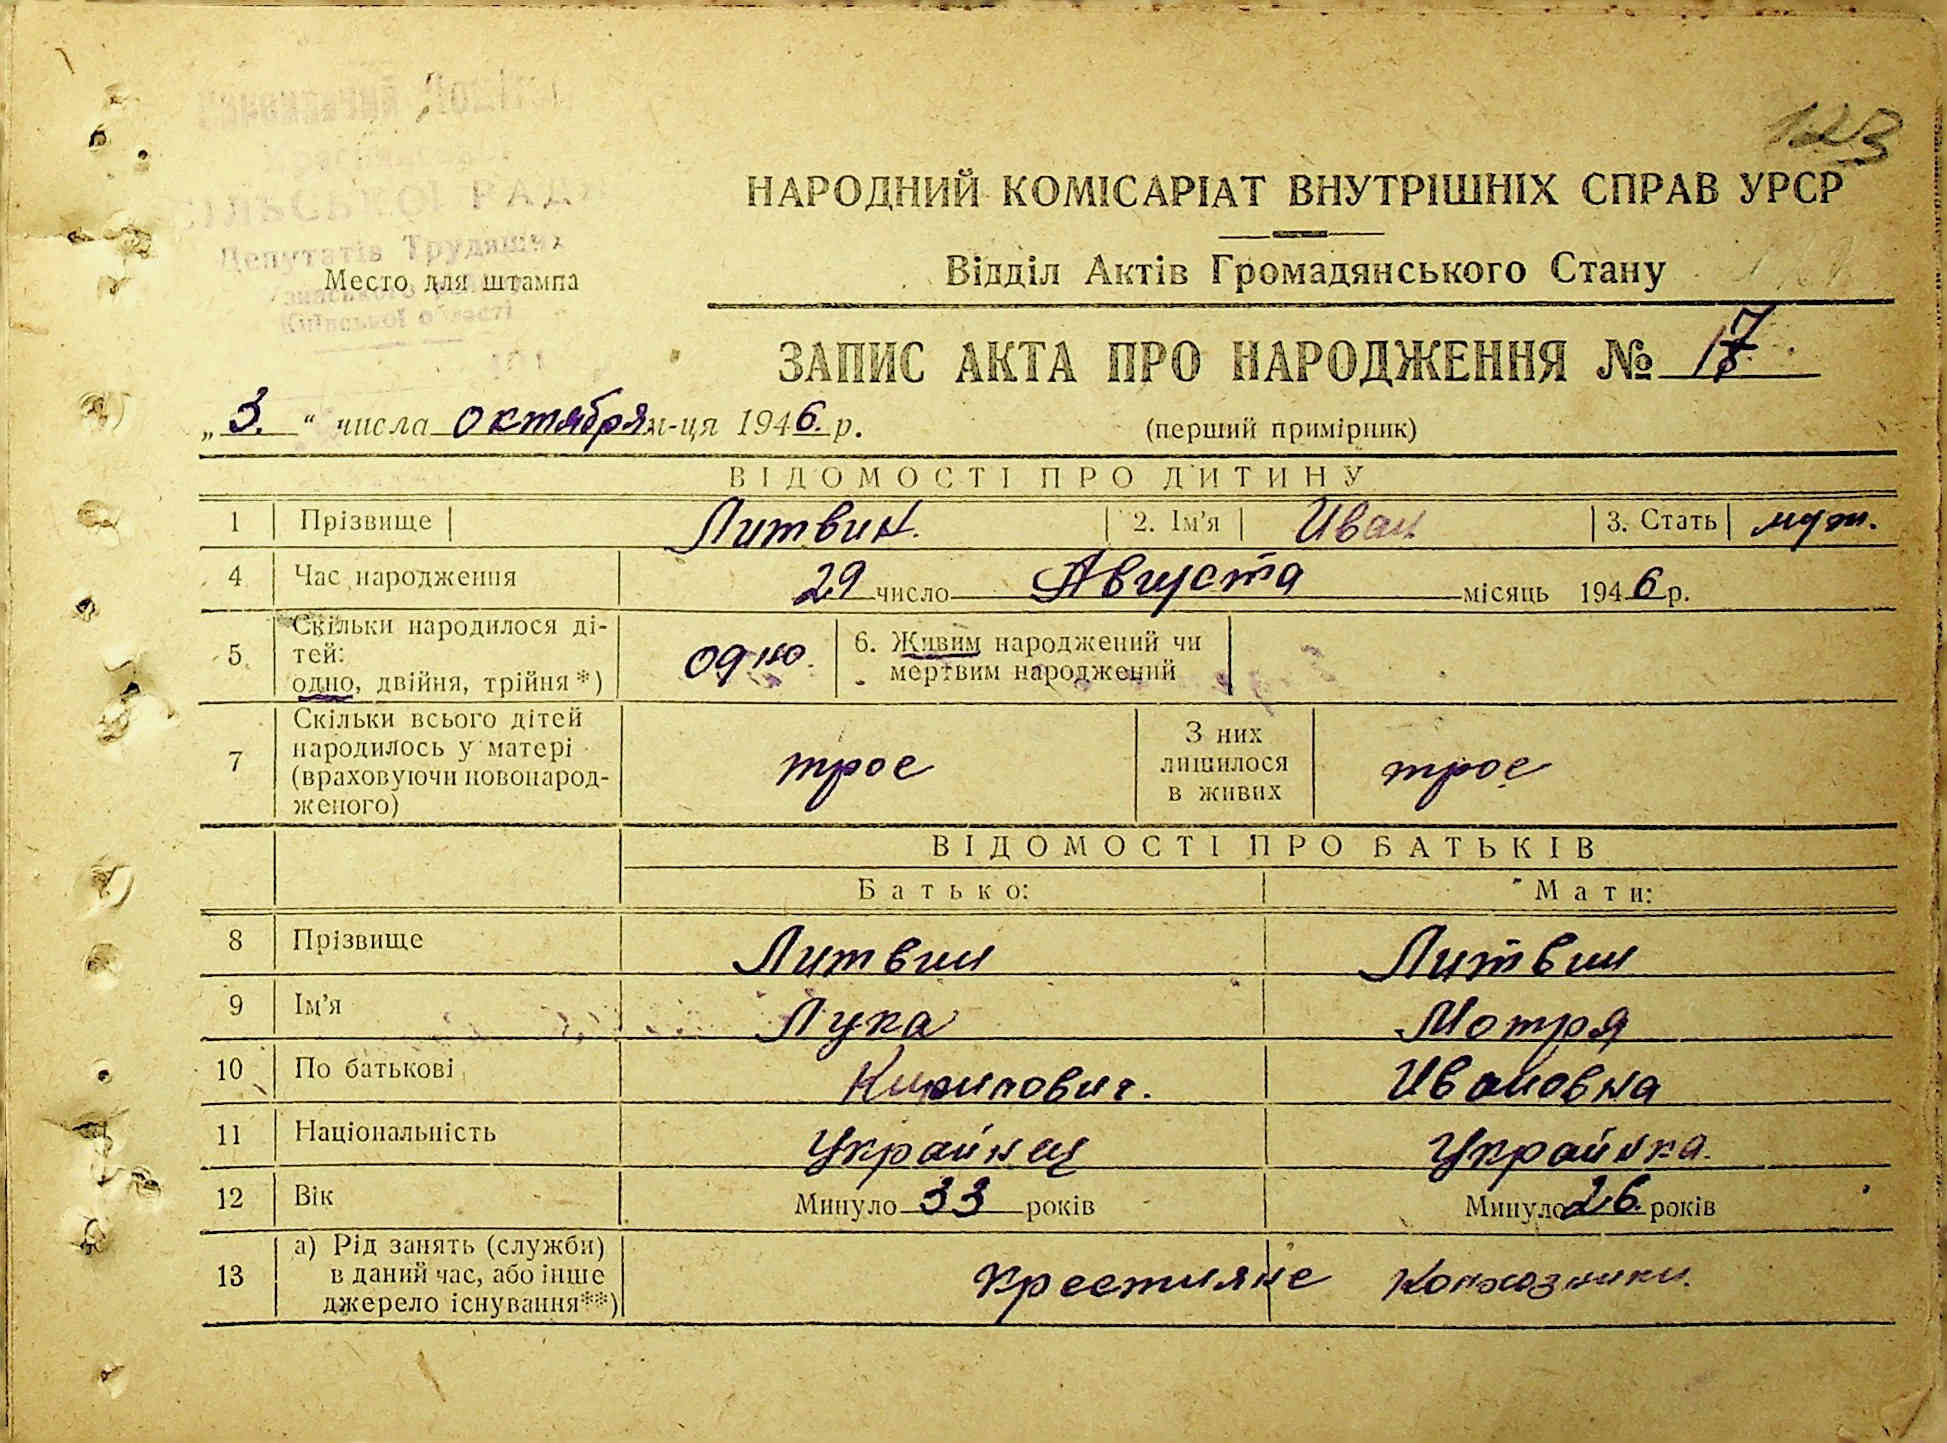 123
НАРОДНИЙ КОМІСАРІАТ ВНУТРІШНІХ СПРАВ УРСР
СІЛЬСЬКОЇ РАДИ
Депутатів Трудящих
Відділ Актів Громадянського Стану
Место для штампа
Київської області
ЗАПИС АКТА ПРО НАРОДЖЕННЯ № 17
„3.“ числа октября м-ця 1946. р.
(перший примірник)
ВІДОМОСТІ ПРО ДИТИНУ
1 Прізвище Литвин. 2. Ім'я Иван 3. Стать муж.
4 Час народження 29 число Августа місяць 1946 р.
5 Скільки народилося ді-
тей:
одно, двійня, трійня*) одно. 6. Живим народжений чи
мертвим народжений
7 Скільки всього дітей
народилось у матері
(враховуючи новонарод-
женого) трое З них
лишилося
в живих трое
ВІДОМОСТІ ПРО БАТЬКІВ
Батько: Мати:
8 Прізвище Литвин Литвин
9 Ім'я Лука Мотря
10 По батькові Ивановна
11 Національність Украйнец Украйнка.
12 Вік Минуло 33 років Минуло 26. років
13 а) Рід занять (служби)
в даний час, або інше
джерело існування**) Крестияне Колхозники.